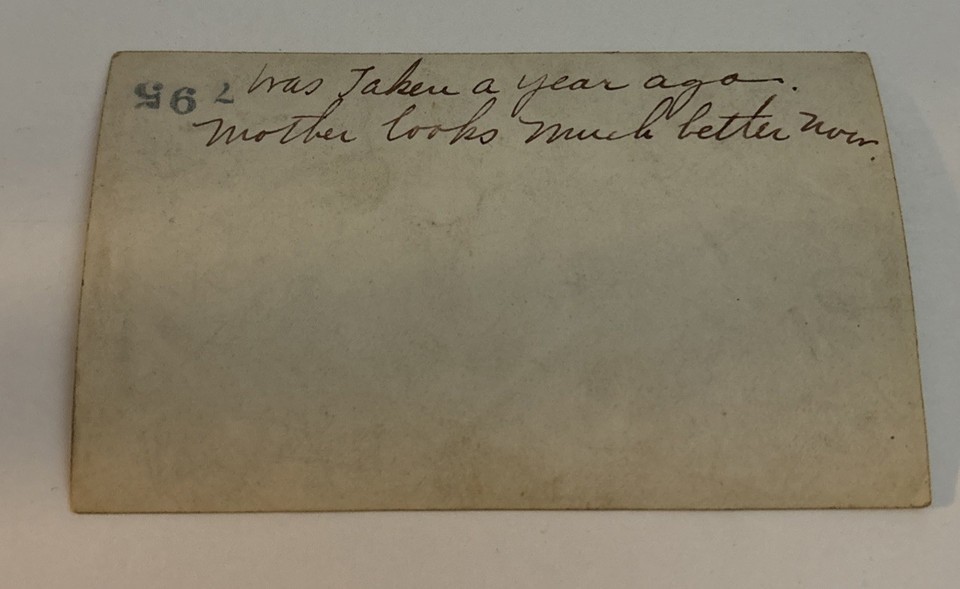 795
Was Taken a year ago.
Mother looks much better now.